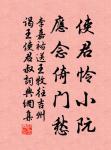 使君怜小阮
應念倚門愁
李嘉祐送王牧往吉州
謁王使君叔詞典網集